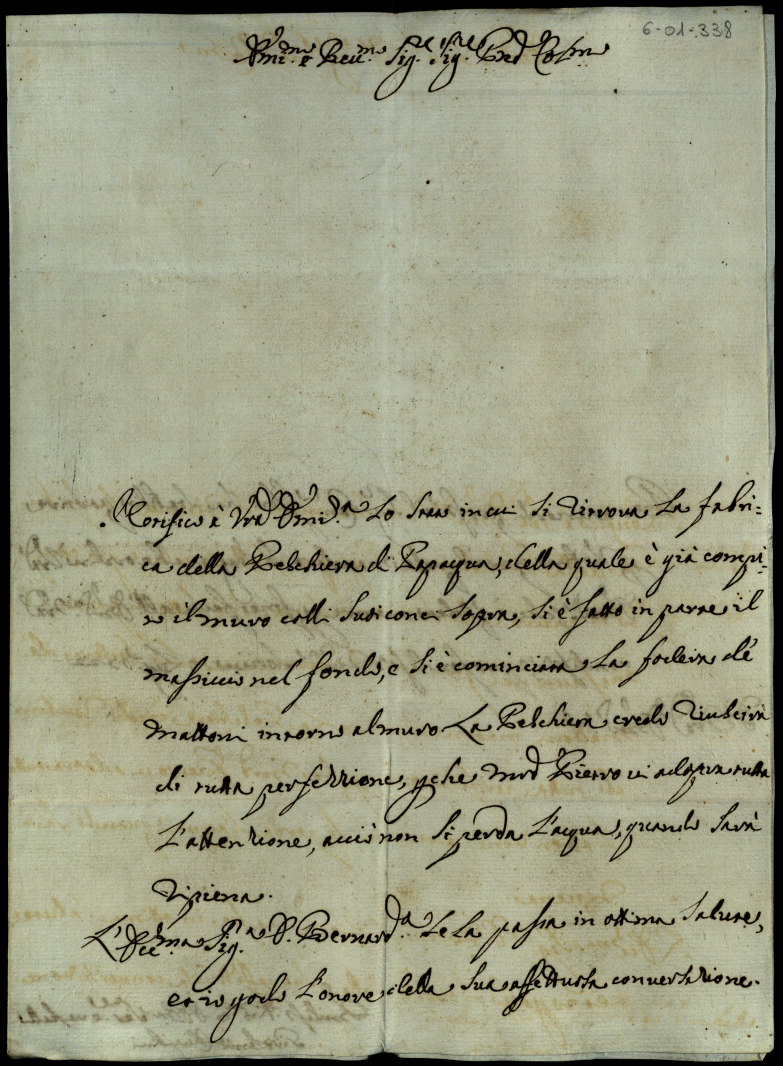 6-01-338
Emin.mo e Rev.mo Sig.re Sig.re Prõn Col.mo
Notifico à Vrã Emin.a lo stato in cui si ritrova la fabri=
ca della Peschiera di Papacqua, della quale è già compi=
to il muro colli suoi conci sopra, si è fatto in parte il
massiccio nel fondo, e si è cominciata la fodera dé
mattoni intorno al muro. La Peschiera credo riuscirà
di tutta perfezzione, pche Mrõ Pietro ui adopra tutta
l'attenzione, acciò non si perda l'acqua, quando sarà
ripiena.
L'Ecc.ma Sig.a D. Bernard.a se la passa in ottima salute,
et io godo l'onore della sua affettuosa conversazione.